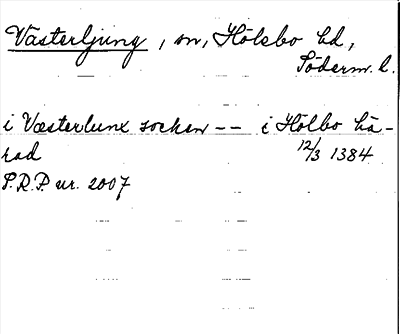 Västerljung, sn, Hölebo hd,
Söderm. l.
i Væsterlunx socken -- i Hölbo hä-
rad 12/3 1384
S.R.P. nr. 2007